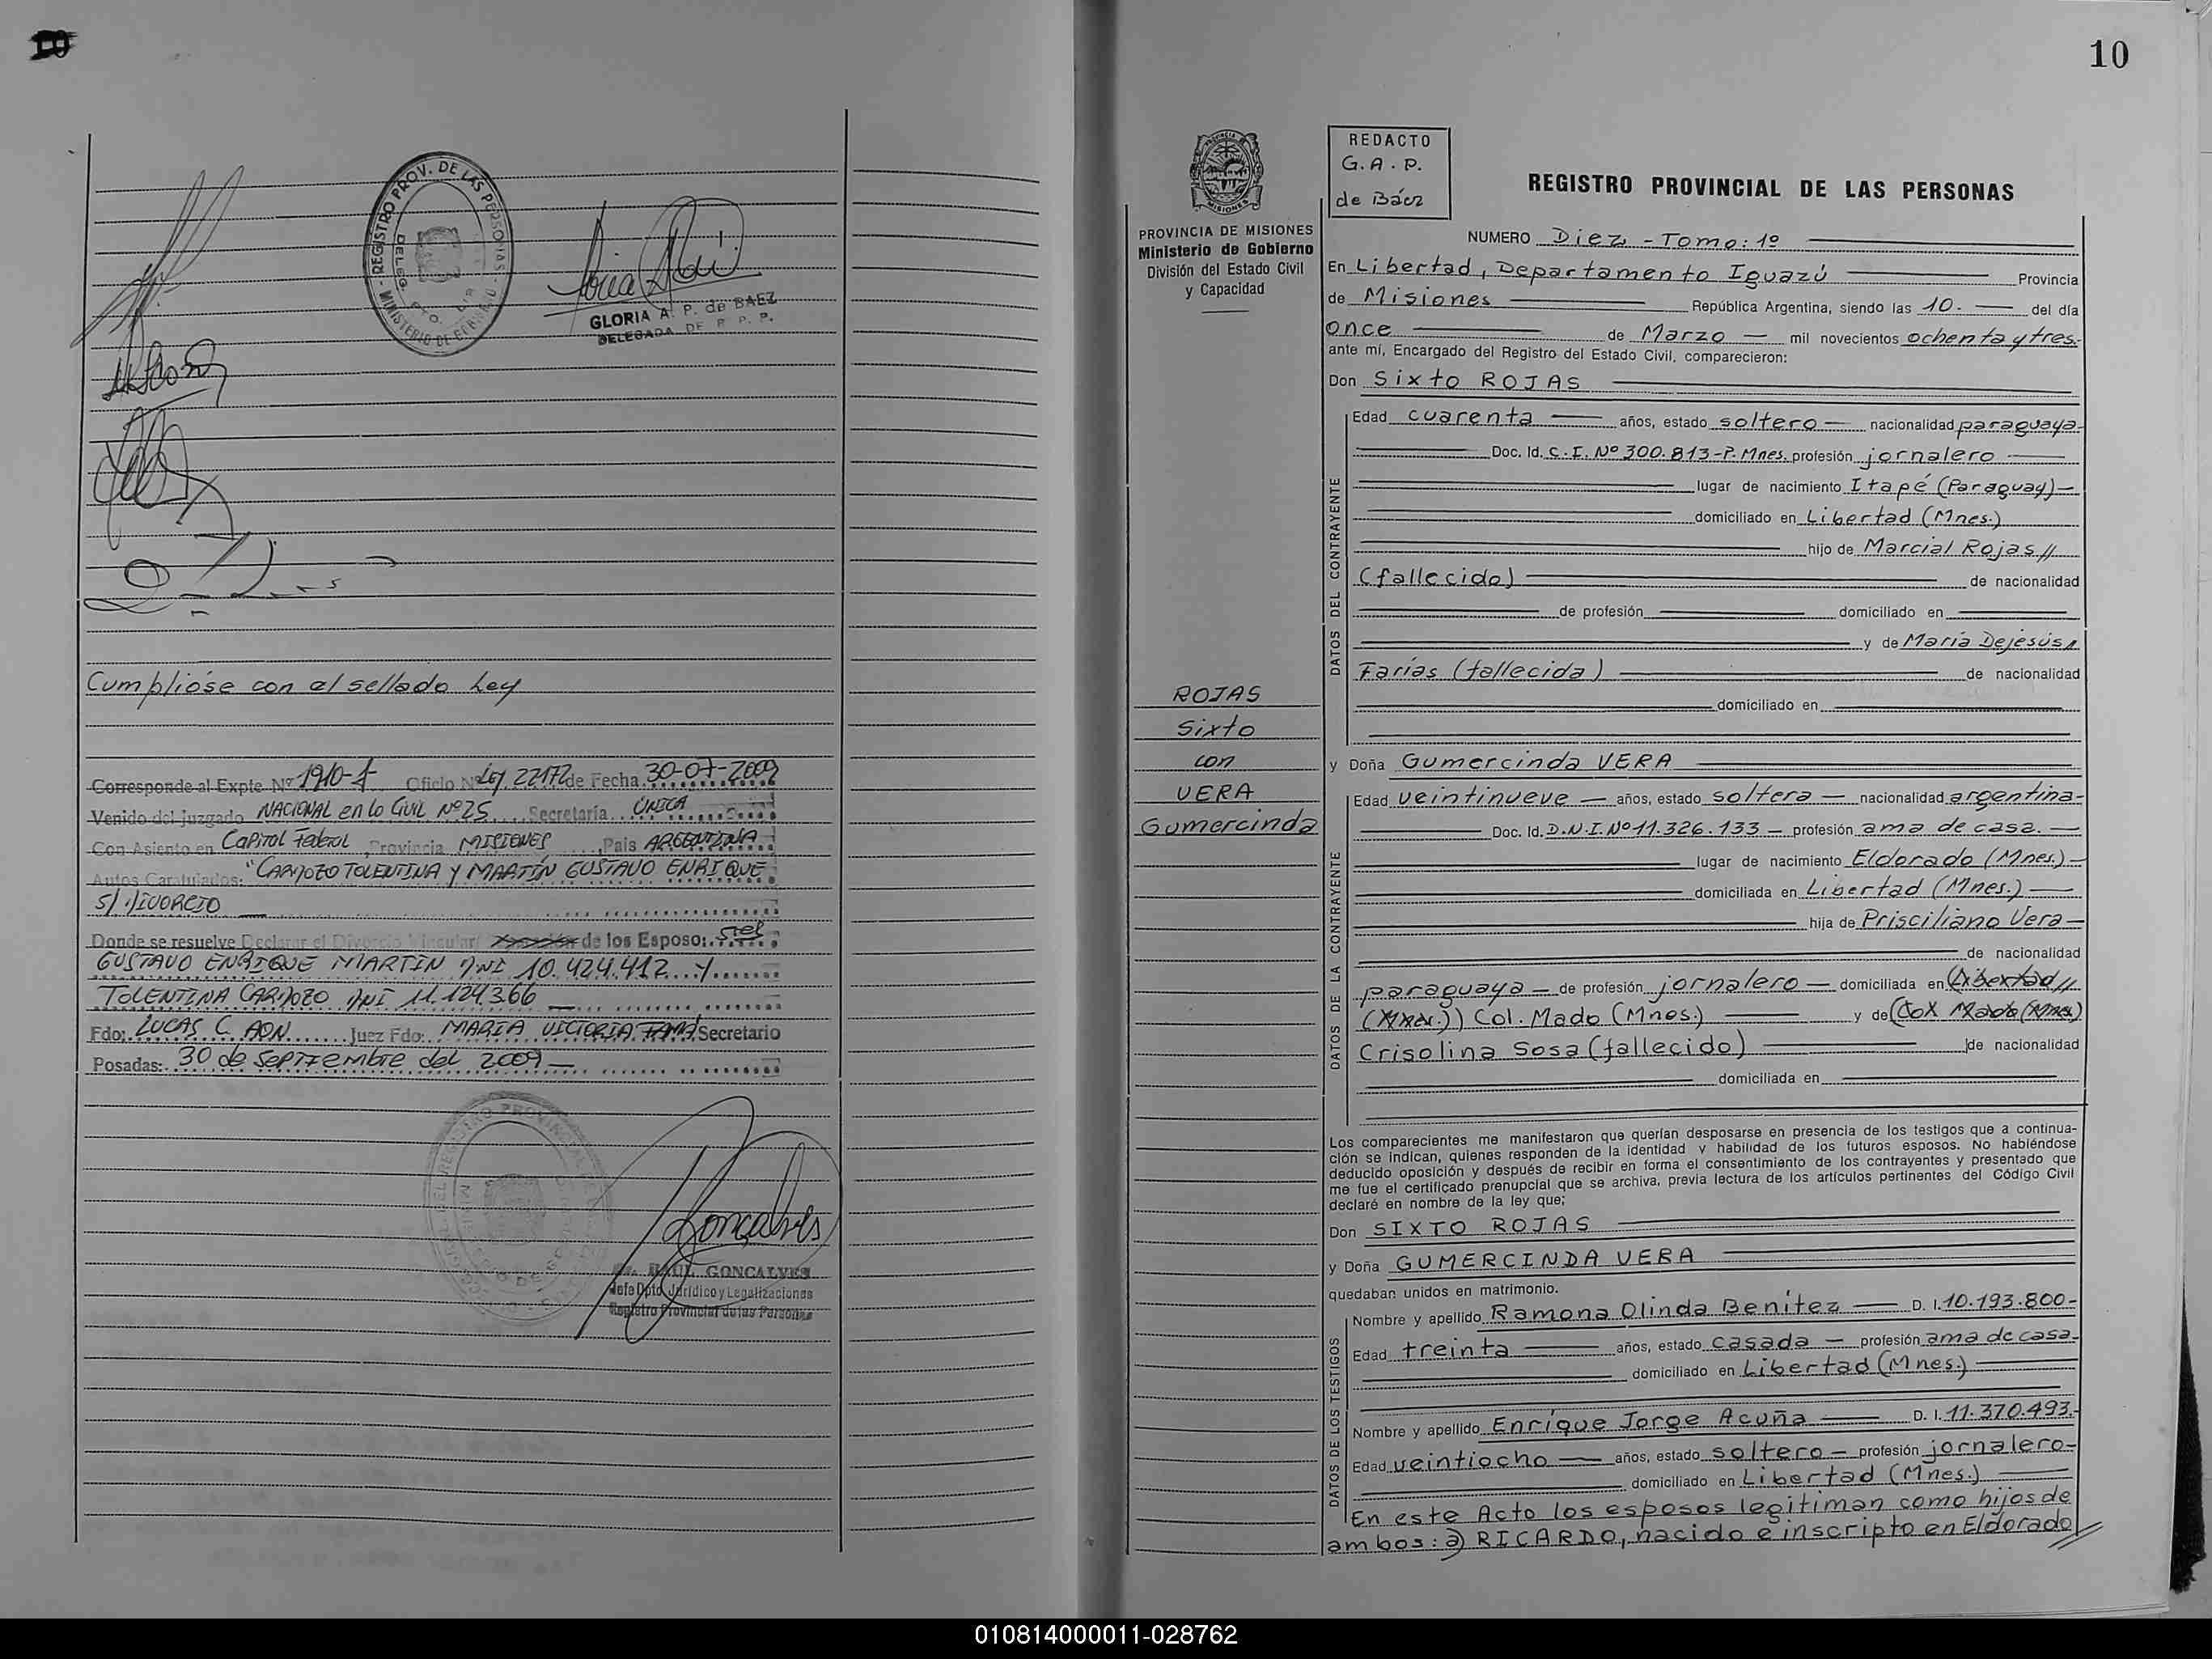 REGISTRO PROV. DE LAS PERSONAS
GLORIA A. P. de BAEZ
DELEGADA DE R. P. P.
Cumplióse con el sellado Ley
Corresponde al Expte Nº 1910-1 Oficio Nº Ley 22172 de Fecha 30-07-2009
Venido del juzgado NACIONAL en lo Civil Nº 25 Secretaría ÚNICA
Con Asiento en Capital Federal Provincia MISIONES País ARGENTINA
Autos Caratulados: "CARDOZO TOLENTINA Y MARTÍN GUSTAVO ENRIQUE
S/ DIVORCIO
Donde se resuelve Declarar el Divorcio Vincular de los Esposo: Sres
GUSTAVO ENRIQUE MARTIN DNI 10.424.412 Y
TOLENTINA CARDOZO DNI 11.124.366
Fdo: LUCAS C. AON Juez Fdo: MARIA VICTORIA Secretario
Posadas: 30 de SEPTIEMBRE del 2009
Goncalves
RAUL GONCALVES
Jefe Dpto Jurídico y Legalizaciones
Registro Provincial de las Personas
10
PROVINCIA DE MISIONES
Ministerio de Gobierno
División del Estado Civil
y Capacidad
ROJAS
Sixto
con
VERA
Gumercinda
REDACTO
G. A. P.
de Báez
REGISTRO PROVINCIAL DE LAS PERSONAS
NUMERO Diez - Tomo: 1º
En Libertad, Departamento Iguazú Provincia
de Misiones República Argentina, siendo las 10. del día
once de Marzo mil novecientos ochenta y tres.
ante mí, Encargado del Registro del Estado Civil, comparecieron:
Don Sixto ROJAS
DATOS DEL CONTRAYENTE
Edad cuarenta años, estado soltero nacionalidad paraguaya
Doc. Id. C.I. Nº 300.813-P. Mnes. profesión jornalero
lugar de nacimiento Itapé (Paraguay)
domiciliado en Libertad (Mnes.)
hijo de Marcial Rojas //
(fallecido) de nacionalidad
de profesión domiciliado en
y de María Dejesús
Farías (fallecida) de nacionalidad
domiciliado en
y Doña Gumercinda VERA
DATOS DE LA CONTRAYENTE
Edad veintinueve años, estado soltera nacionalidad argentina
Doc. Id. D.N.I. Nº 11.326.133 profesión ama de casa.
lugar de nacimiento Eldorado (Mnes.)
domiciliada en Libertad (Mnes.)
hija de Prisciliano Vera
de nacionalidad
paraguaya de profesión jornalero domiciliada en (Libertad //
(Mnes.)) Col. Mado (Mnes.) y de (Col Mado (Mnes.)
Crisolina Sosa (fallecido) de nacionalidad
domiciliada en
Los comparecientes me manifestaron que querían desposarse en presencia de los testigos que a continua-
ción se indican, quienes responden de la identidad y habilidad de los futuros esposos. No habiéndose
deducido oposición y después de recibir en forma el consentimiento de los contrayentes y presentado que
me fue el certificado prenupcial que se archiva, previa lectura de los artículos pertinentes del Código Civil
declaré en nombre de la ley que;
Don SIXTO ROJAS
y Doña GUMERCINDA VERA
quedaban unidos en matrimonio.
DATOS DE LOS TESTIGOS
Nombre y apellido Ramona Olinda Benítez D. I. 10.193.800
Edad treinta años, estado casada profesión ama de casa
domiciliado en Libertad (Mnes.)
Nombre y apellido Enríque Jorge Acuña D. I. 11.370.493.
Edad veintiocho años, estado soltero profesión jornalero
domiciliado en Libertad (Mnes.)
En este Acto los esposos legitiman como hijos de
ambos: a) RICARDO, nacido e inscripto en Eldorado //
010814000011-028762